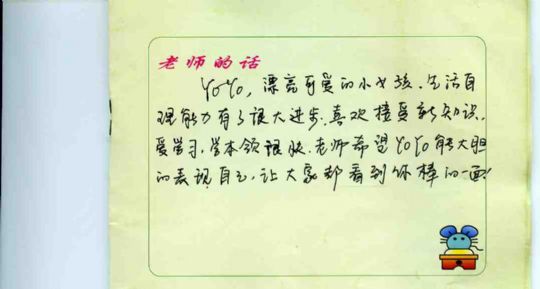 老师的话
YoYo，漂亮可爱的小女孩、生活自
理能力有了很大进步、喜欢接受新知识，
爱学习，学本领很快、老师希望YoYo能大胆
的表现自己，让大家都看到你棒的一面！